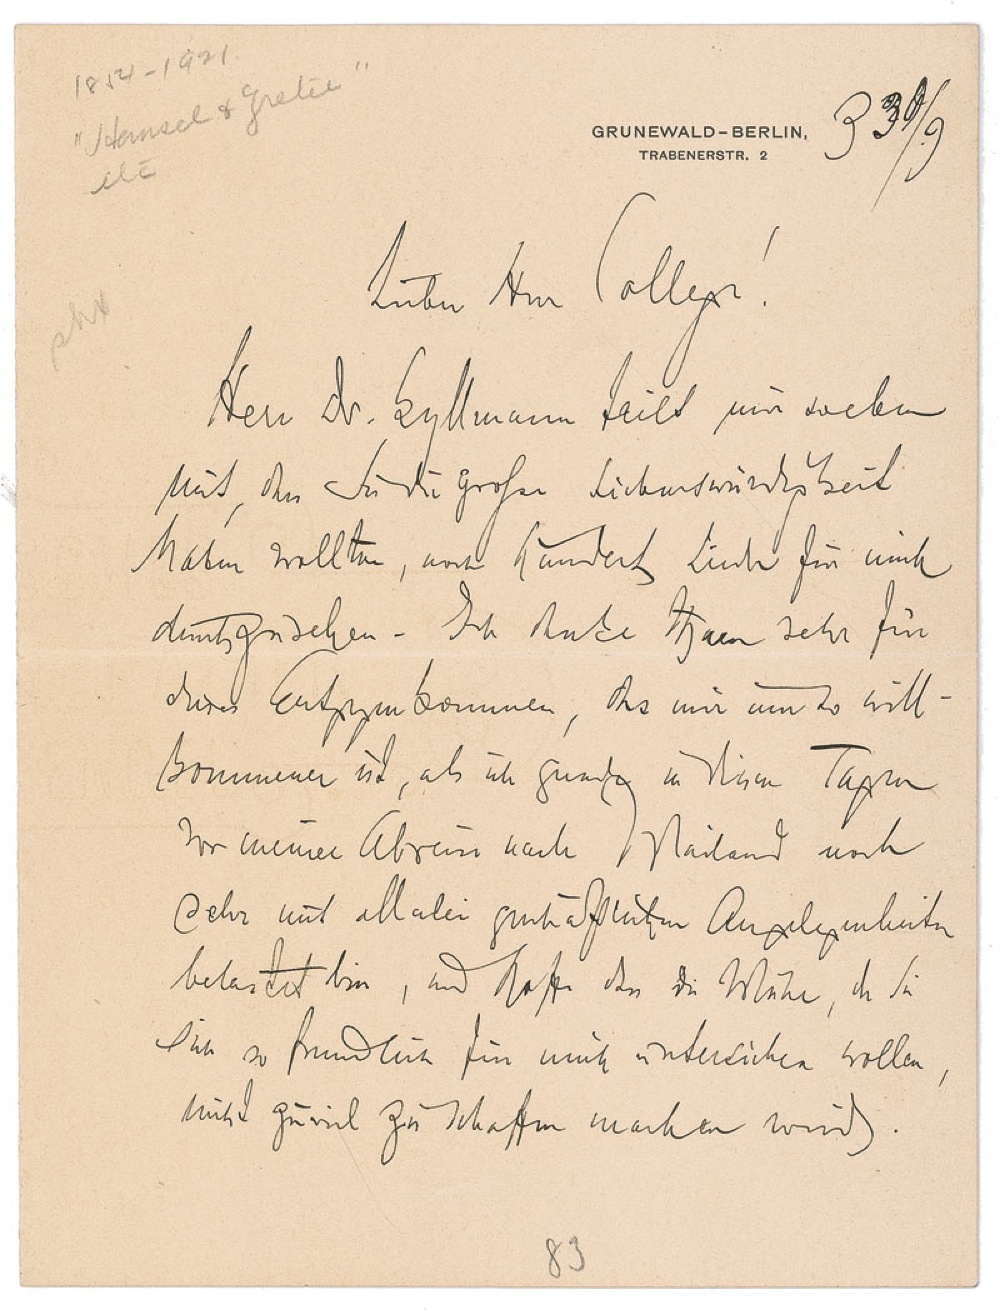 1854-1921.
"Hansel & Gretel"
etc
GRUNEWALD-BERLIN,
TRABENERSTR. 2
Lieber Herr College!
Herr Dr. Gyllmann teilt mir soeben
mit, dass Sie die große Liebenswürdigkeit
haben wollten, noch hundert Lieder für mich
durchzusehen - Ich danke Ihnen sehr für
dieses Entgegenkommen, das mir um so will-
kommener ist, als ich gerade in diesen Tagen
vor meiner Abreise nach Mailand noch
sehr mit allerlei geschäftlichen Angelegenheiten
belastet bin, und hoffe dass die Mühe, der Sie
Sich so freundlich für mich unterziehen wollen,
nicht zuviel zu schaffen machen wird.
83